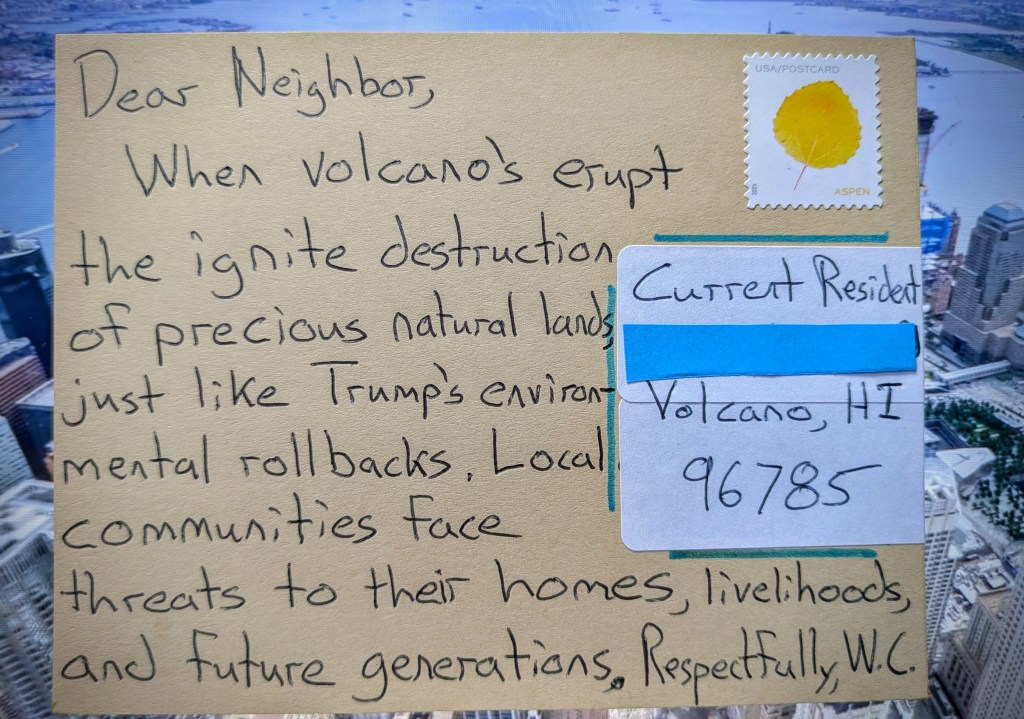 Dear Neighbor,
USA/POSTCARD
When volcano's erupt
ASPEN
the ignite destruction
of precious natural lands,
just like Trump's environ-
mental rollbacks. Local
communities face
threats to their homes, livelihoods,
and future generations. Respectfully, W.C.
Current Resident
Volcano, HI
96785